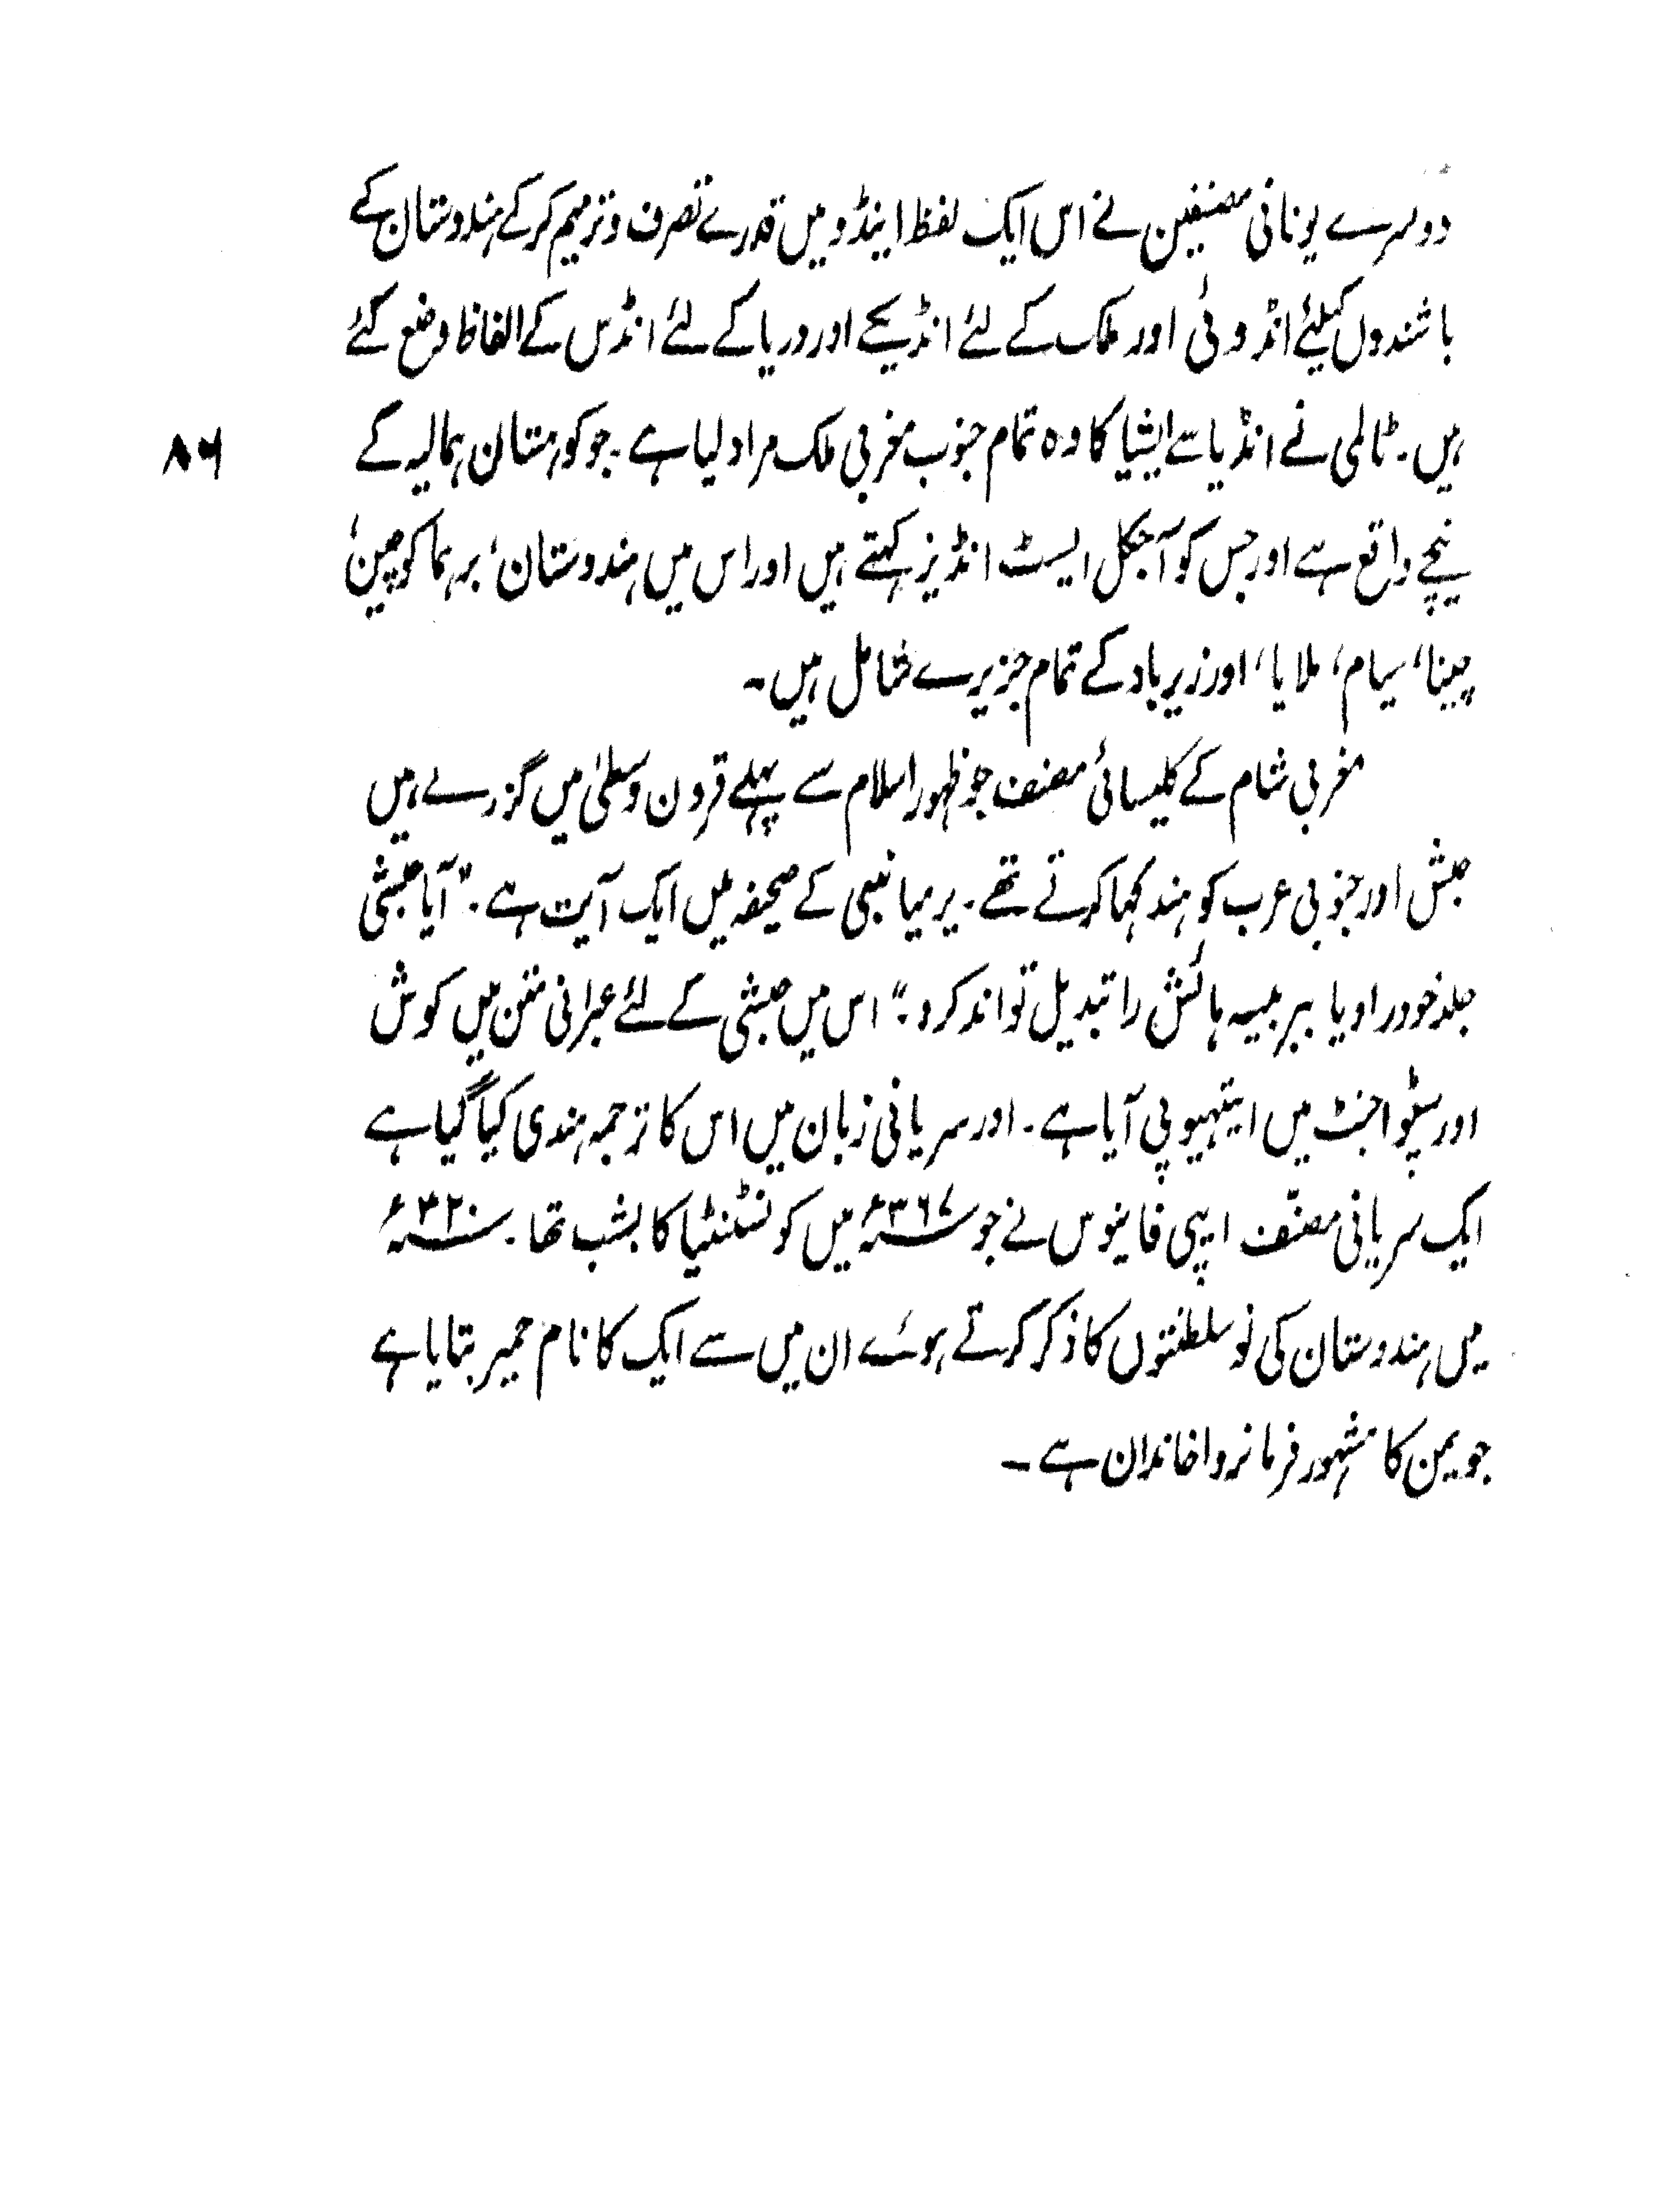 دوسرے یونانی مصنفین نے اس ایک لفظ اینڈو میں قدرے تصرف و ترمیم کر کے ہندوستان کے
باشندوں کیلئے انڈوئی اور ملک کے لئے انڈیکے اور دریا کے لئے انڈس کے الفاظ وضع کئے
ہیں۔ ٹالمی نے انڈیا سے ایشیا کا وہ تمام جنوب مغربی ملک مراد لیا ہے۔ جو کوہستان ہمالیہ کے
۸۶
نیچے واقع ہے اور جس کو آجکل ایسٹ انڈیز کہتے ہیں اور اس میں ہندوستان، برہما کوچین،
چینا، سیام، ملایا، اور زیرباد کے تمام جزیرے شامل ہیں۔
مغربی شام کے کلیسائی مصنف جو ظہور اسلام سے پہلے قرون وسطیٰ میں گزرے ہیں
حبش اور جنوبی عرب کو ہند کہا کرتے تھے۔ یرمیا نبی کے صحیفہ میں ایک آیت ہے۔ "آیا حبشی
جلد خود را ویا ببر پیسہ ہائش را تبدیل تواند کرد۔" اس میں حبشی کے لئے عبرانی متن میں کوش
اور سپٹواجنٹ میں ایتھیوپی آیا ہے۔ اور سریانی زبان میں اس کا ترجمہ ہندی کیا گیا ہے
ایک سریانی مصنّف ایپی فانیوس نے جو سنہ ۳۶۷ء میں کونسٹنٹیا کا بشپ تھا۔ سنہ ۳۲۰ء
میں ہندوستان کی نو سلطنتوں کا ذکر کرتے ہوئے ان میں سے ایک کا نام حمیر بتایا ہے
جو یمن کا مشہور فرمانروا خاندان ہے۔